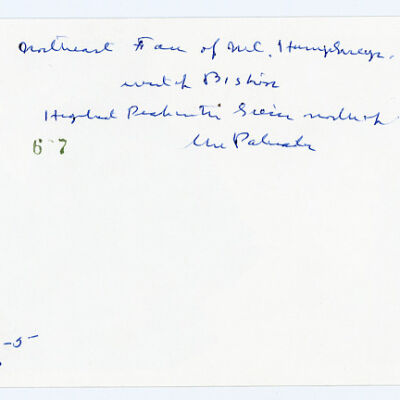 Northeast Face of Mt. Humphreys.
west of Bishop
Highest Peak in the Sierra north of
the Palisade
6 7
-5-